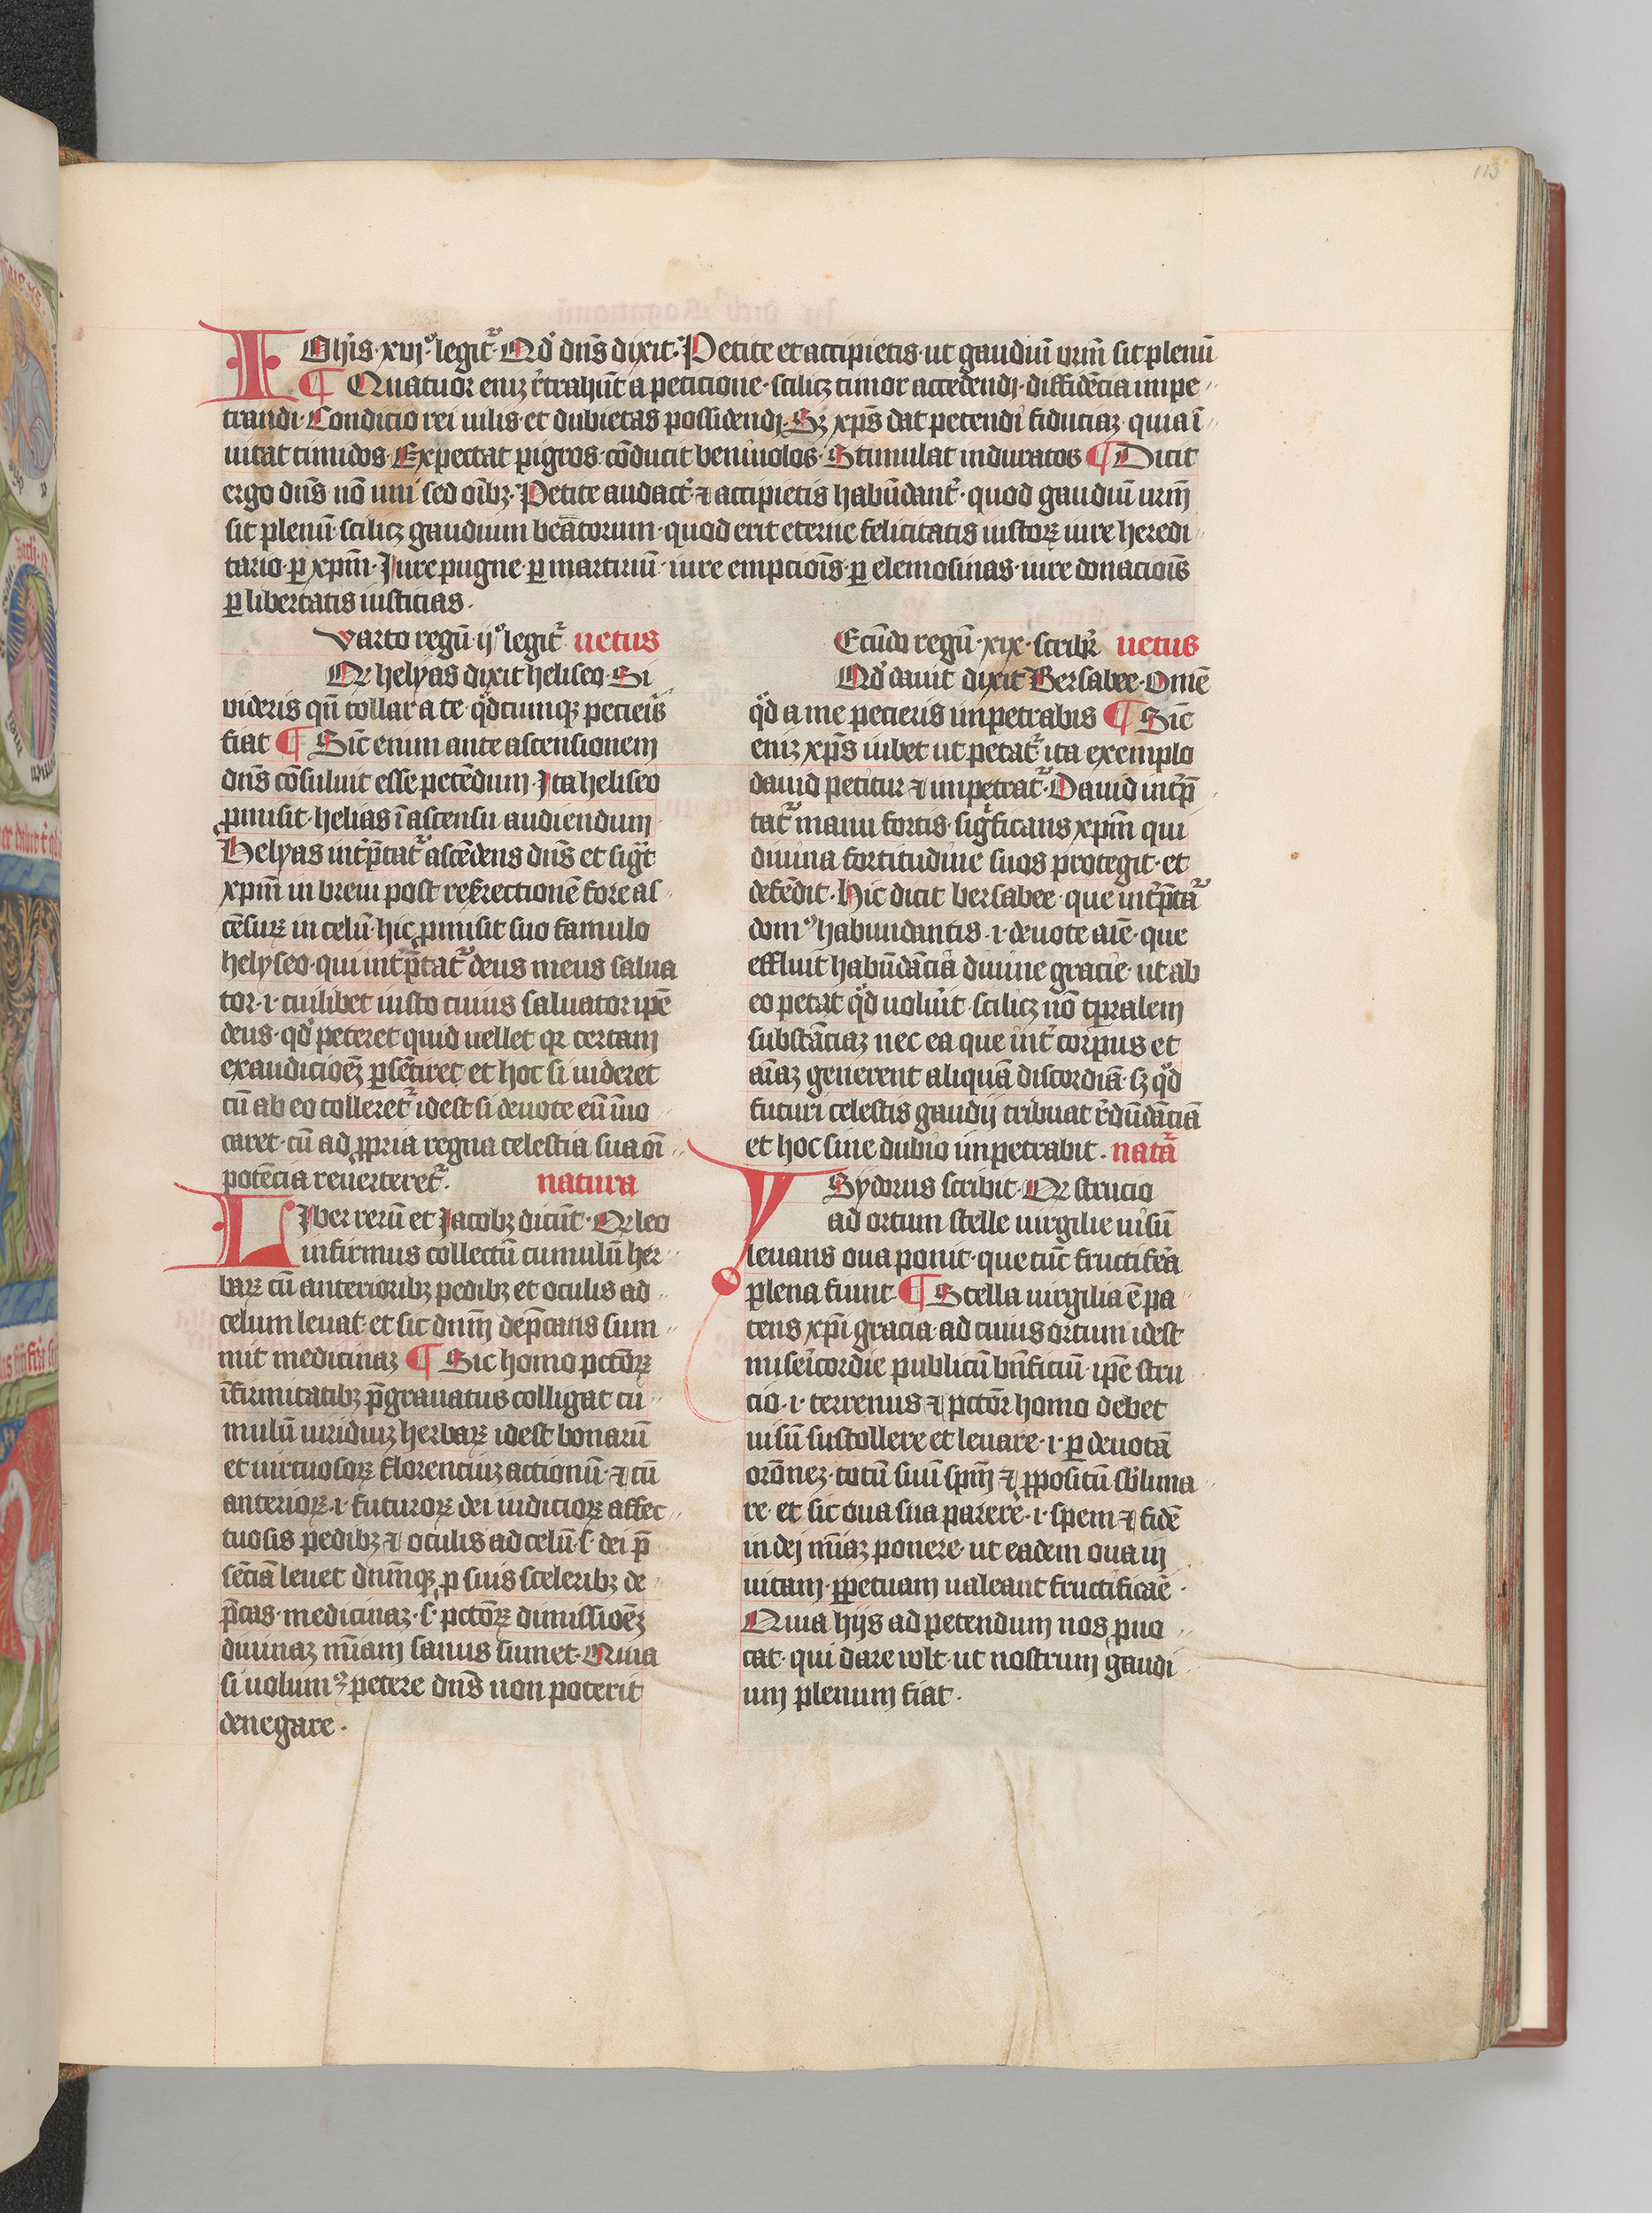 113
IOhīs · xvj° · legit᷑ · Qd̕ dn̄s dixit · Petite et accipietis · ut gaudiū vrm̄ sit plenū
¶ Quatuor eniꝫ r̕trahūt a peticione · scilicꝫ timor accedendj · diffidēcia impe
trandi · Condicio rei uilis · et dubietas possidendj · Sꝫ xp̄s dat petendi fiduciaꝫ · quia ī
uitat timidos · Expectat pigros · cōducit beniuolos · Stimulat induratos ¶ Dicit
ergo dn̄s nō uni sed oībꝫ · Petite audact̕ ⁊ accipietis habūdant̕ · quod gaudiū urm̄
sit plenū · scilicꝫ gaudium beatorum · quod erit eterne felicitatis iustoꝝ iure heredi
tario · ꝑ xpm̄ · Jure pugne · ꝑ martiriū · iure empciōis · ꝑ elemosinas · iure donaciōis
ꝑ libertatis iusticias ·
varto regū · ij° legit᷑ uetus
Qꝛ helyas dixit heliseo · Si
videris qn̄ tollar a te · qd̕cumqꝫ pecieris
fiat ¶ Sic enim ante ascensionem
dn̄s cōsuluit esse petēdum · Ita heliseo
ꝓmisit · helias ī ascensu audiendum
Helyas int̕p̄tat᷑ ascēdens dn̄s et sig̕t
xpm̄ in breui post resurrectionē fore as
cēsuꝝ in celū · hic ꝓmisit suo famulo
helyseo · qui int̕p̄tat᷑ deus meus salua
tor · i · cuilibet iusto cuius saluator ipē
deus · qd̕ peteret quid uellet qꝛ certam
exaudicioēꝫ ꝑsētiret · et hoc si uideret
cū ab eo tolleret᷑ idest si deuote eū īuo
caret · cū ad ꝓpria regna celestia sua oī
potēcia reuerteret᷑ · natura
LIber rerū et Jacobꝫ dicūt · Qꝛ leo
infirmus collectū cumulū her
baꝝ cū anterioribꝫ pedibꝫ et oculis ad
celum leuat · et sic dnm̄ dep̄cans sum
mit medicinaꝫ ¶ Sic homo pctōꝝ
īfirmitatibꝫ p̄grauatus colligat cu
mulū uiriduꝫ herbaꝝ idest bonarū
et uirtuosoꝝ florenciuꝫ actionū · ⁊ cū
anterioꝝ · i · futuroꝝ dei iudicioꝝ affec
tuosis pedibꝫ ⁊ oculis ad celū · s · dei p̄
sēciā leuet dnm̄qꝫ ꝓ suis sceleribꝫ de
p̄cās · medicinaꝫ · s · pctōꝝ dimissioēꝫ
diuinaꝫ mīam sanus sumet · Quia
si uolum᷒ petere dn̄s non poterit
denegare ·
Ecūdo regū · xix · scribit᷑ uetus
Qd̕ dauit dixit Bersabee · Omē
qd̕ a me pecieris inpetrabis ¶ Sic
eniꝫ xp̄s iubet ut petat᷑ ita exemplo
dauid petitur ⁊ inpetrat᷑ · Dauid int̕p̄
tat᷑ manu fortis · sig̕ficans xpm̄ qui
diuina fortitudine suos protegit · et
defēdit · Hic dicit bersabee · que int̕p̄ta᷑
dom᷒ habundantis · i · deuote aīe · que
effluit habūdāciā diuine gracie · ut ab
eo petat qd̕ uolu̕it · scilicꝫ nō tp̄ralem
substāciaꝫ nec ea que int̕ corpus et
aīaꝫ generent aliquā discordiā · sꝫ qd̕
futuri celestis gaudij tribuat r̕dūdāciā
et hoc sine dubio inpetrabit · nat᷑a
YSydorus scribit · Qꝛ strucio
ad ortum stelle uirgilie uisū
leuans oua ponit · que tūc fructifera
plena fiunt ¶ Stella uirgilia ē pa
tens xp̄i gracia · ad cuius ortum idest
misericordie publicū bn̄ficiū · ipē stru
cio · i · terrenus ⁊ pctōr homo debet
uisū sustollere et leuare · i · ꝑ deuotā
orōneꝫ · totū suū spm̄ ⁊ ꝓpositū sb̕lima
re · et sic oua sua parere · i · spem ⁊ fidē
in dej mīaꝫ ponere · ut eadem oua in
uitam · ꝑpetuam ualeant fructificare ·
Quia hijs ad petendum nos ꝓuo
cat · qui dare wlt · ut nostrum gaudi
um plenum fiat ·